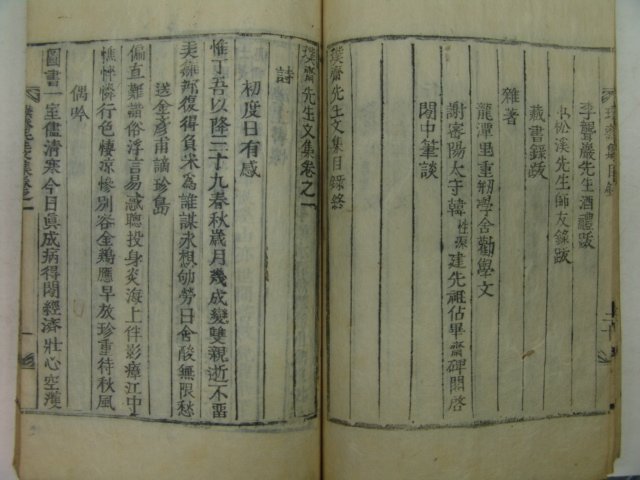 李聾巖先生酒禮跋
松溪先生師友錄跋
藏書錄跋
雜著
龍潭里重刱學舍勸學文
謝密陽太守韓性深建先祖佔畢齋碑閣啓
閒中筆談
璞齋先生文集目錄終
璞齋先生文集卷之一
詩
初度日有感
惟丁吾以降二十九春秋歲月幾成變雙親逝不留
美雖那復得負米為誰謀永想劬勞日含酸無限愁
送金彥甫謫珍島
偏直難諧俗浮言易惑聽投身炎海上伴影瘴江中
憔悴行色悽凉慘別容金鷄應早放珍重待秋風
偶吟
圖書一室儘清寒今日眞成病得閒經濟壯心空濩